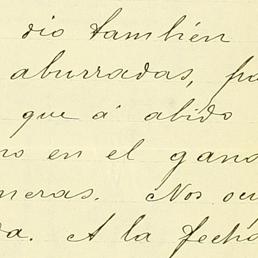 dio también
aburradas, pa
que á abido
no en el gana
neras. Nos
da. A la fecha